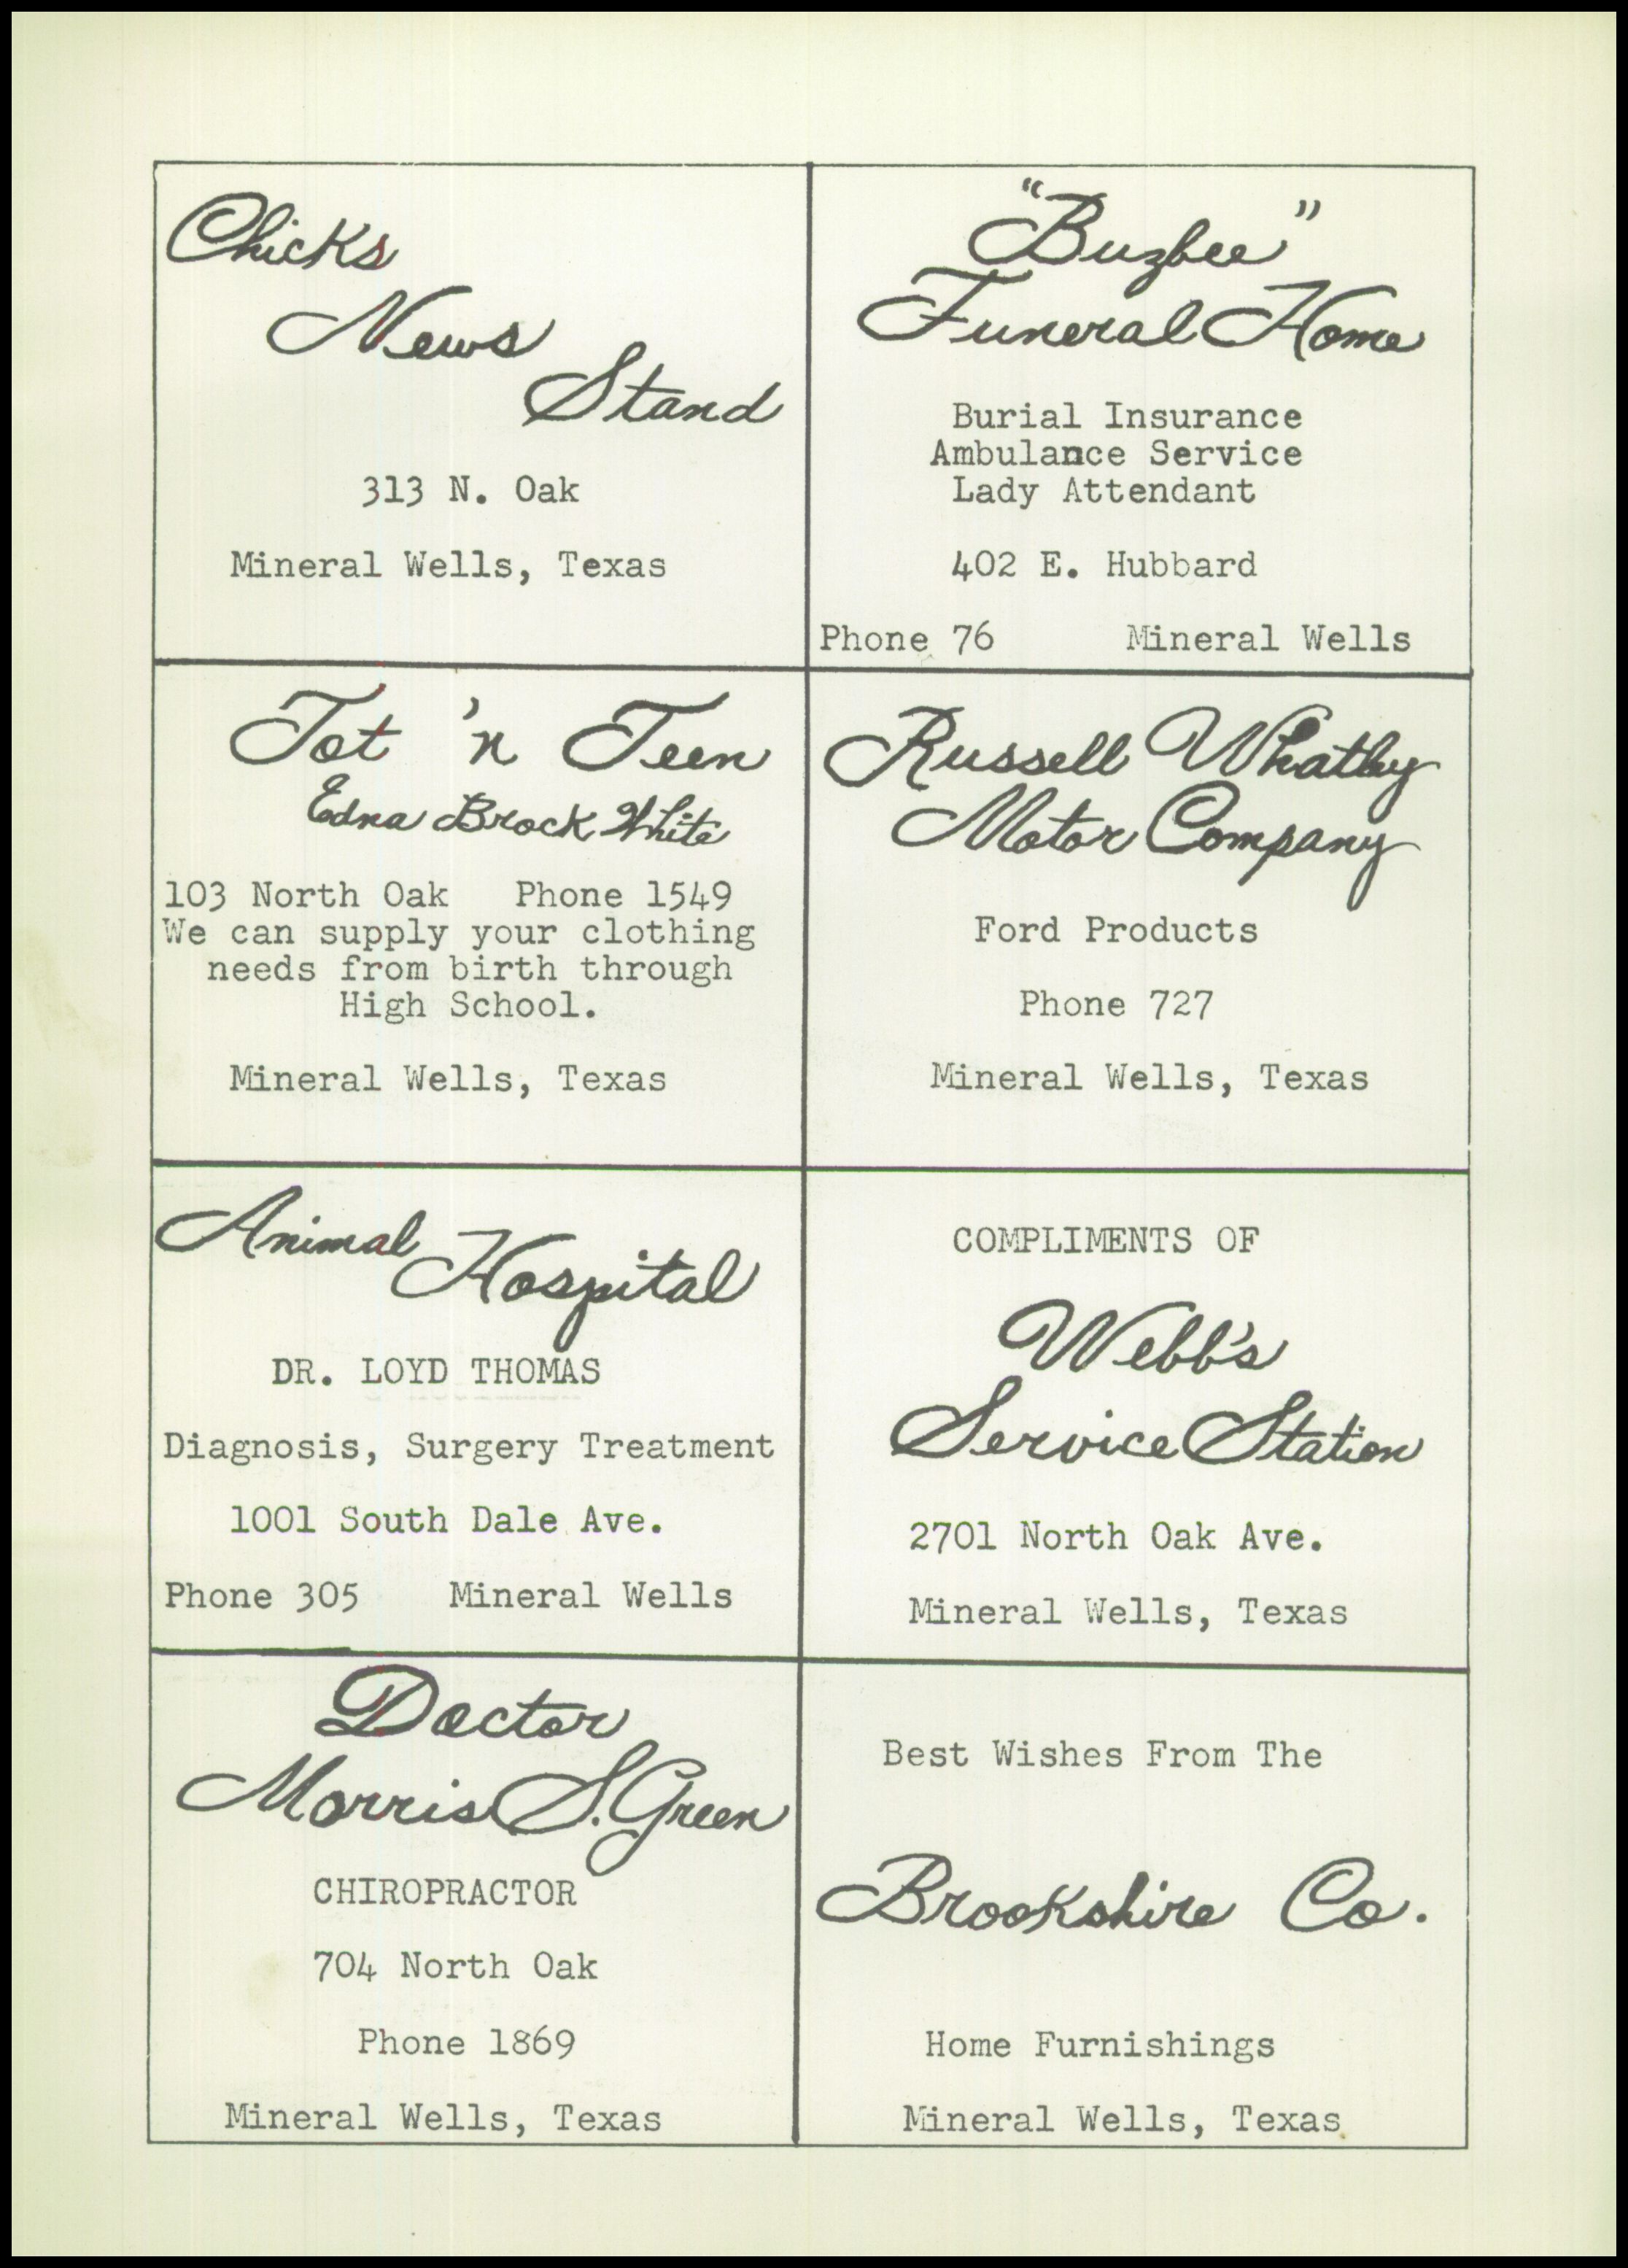 Chicks
News
Stand
313 N. Oak
Mineral Wells, Texas
"Buzbee"
Funeral Home
Burial Insurance
Ambulance Service
Lady Attendant
402 E. Hubbard
Phone 76 Mineral Wells
Tot 'n Teen
Edna Brock White
103 North Oak Phone 1549
We can supply your clothing
needs from birth through
High School.
Mineral Wells, Texas
Russell Whatley
Motor Company
Ford Products
Phone 727
Mineral Wells, Texas
Animal Hospital
DR. LOYD THOMAS
Diagnosis, Surgery Treatment
1001 South Dale Ave.
Phone 305 Mineral Wells
COMPLIMENTS OF
Webb's
Service Station
2701 North Oak Ave.
Mineral Wells, Texas
Doctor
Morris S. Green
CHIROPRACTOR
704 North Oak
Phone 1869
Mineral Wells, Texas
Best Wishes From The
Brookshire Co.
Home Furnishings
Mineral Wells, Texas